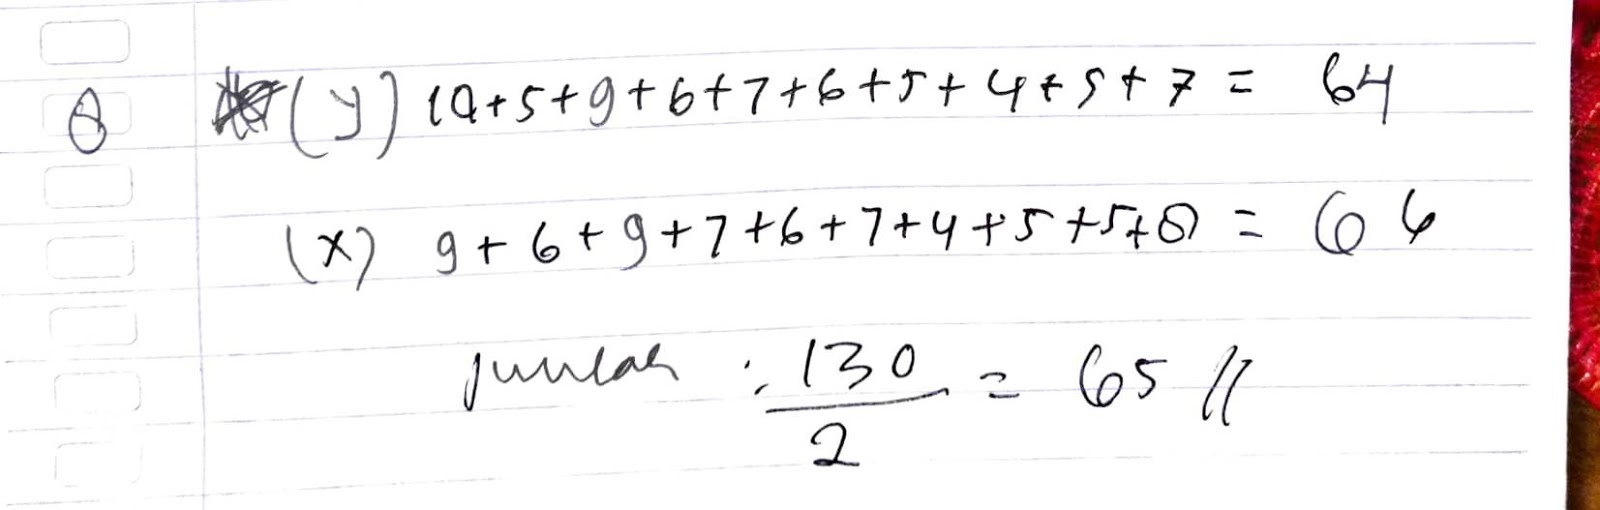 8 (y) 10+5+9+6+7+6+5+4+5+7 = 64
(x) 9+6+9+7+6+7+4+5+5+8 = 66
Jumlah : 130/2 = 65 //